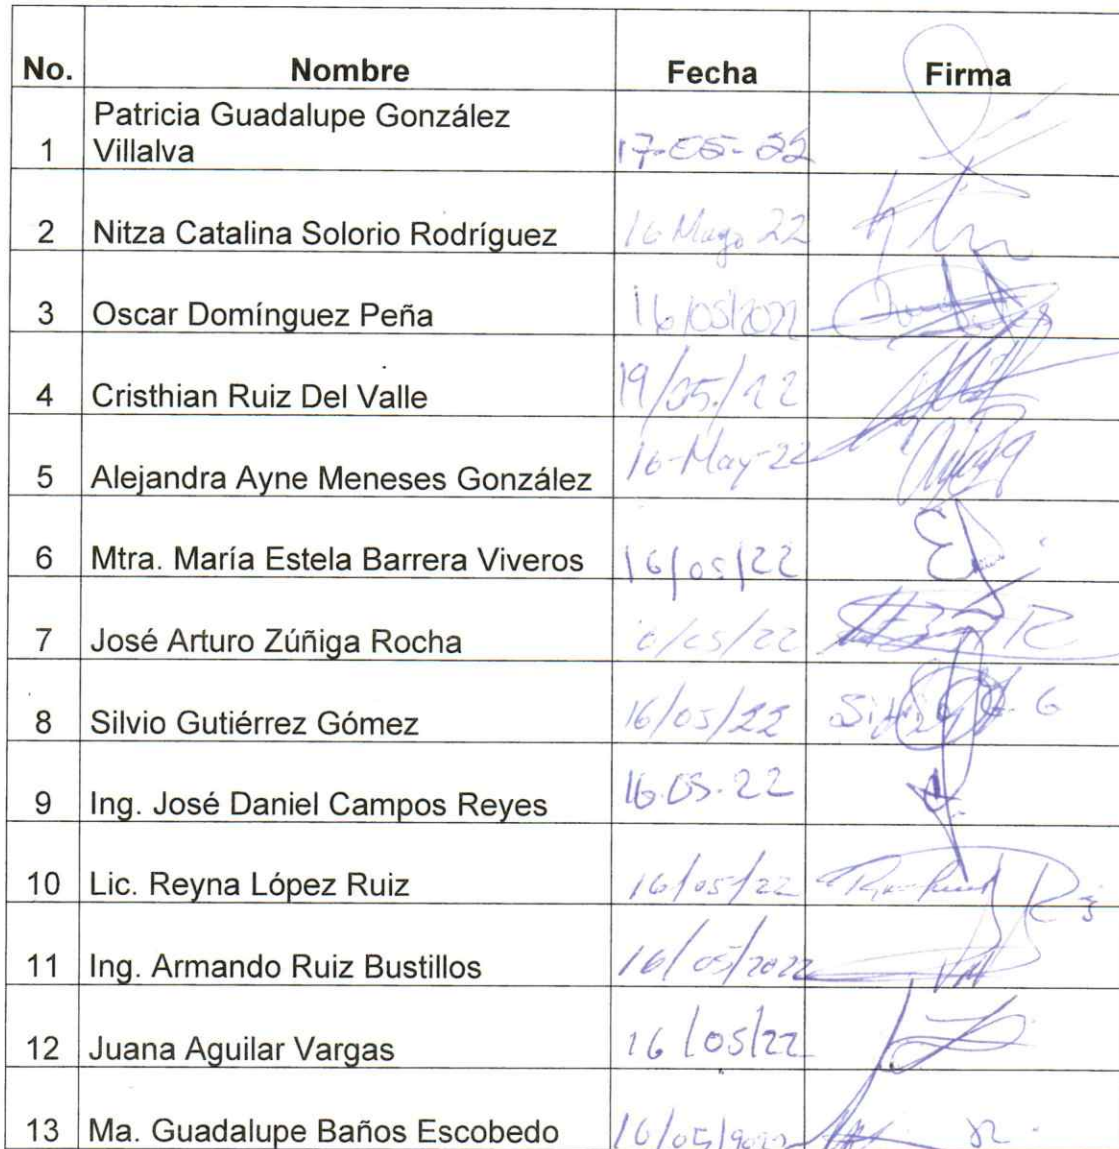 No. Nombre Fecha Firma
Patricia Guadalupe González
1 Villalva 17-05-22
2 Nitza Catalina Solorio Rodríguez 16 Mayo 22
3 Oscar Domínguez Peña 16/05/2022
4 Cristhian Ruiz Del Valle 19/05/22
5 Alejandra Ayne Meneses González 16-May-22
6 Mtra. María Estela Barrera Viveros 16/05/22
7 José Arturo Zúñiga Rocha
8 Silvio Gutiérrez Gómez 16/05/22 Silvio G. G
9 Ing. José Daniel Campos Reyes 16.05.22
10 Lic. Reyna López Ruiz 16/05/22
11 Ing. Armando Ruiz Bustillos 16/05/2022
12 Juana Aguilar Vargas 16/05/22
13 Ma. Guadalupe Baños Escobedo 16/05/2022